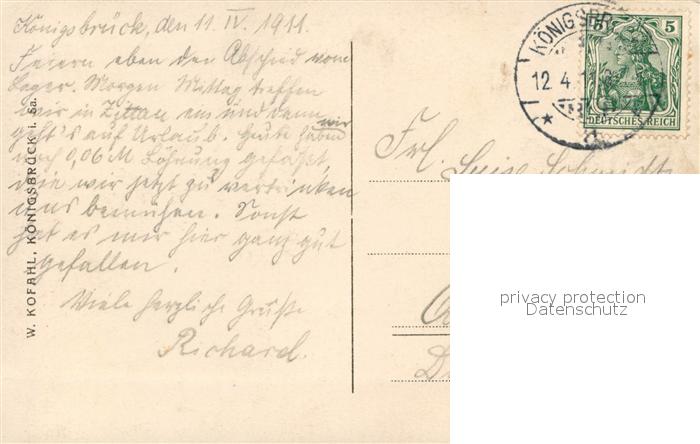 Königsbrück, den 11. IV. 1911.
Feiern eben den Abschied vom
Lager. Morgen Mittag treffen
wir in Zittau ein und dann
geht's auf Urlaub. Heute haben wir
noch 0,06 M Löhnung gefaßt,
die wir jetzt zu vertrinken
uns bemühen. Sonst
hat es mir hier ganz gut
gefallen.
Viele herzliche Grüße
Richard.
W. KOFAHL, KÖNIGSBRÜCK i. Sa.
KÖNIGSBR
12.4.11
5
DEUTSCHES REICH
Frl. Luise Schmidt
privacy protection
Datenschutz